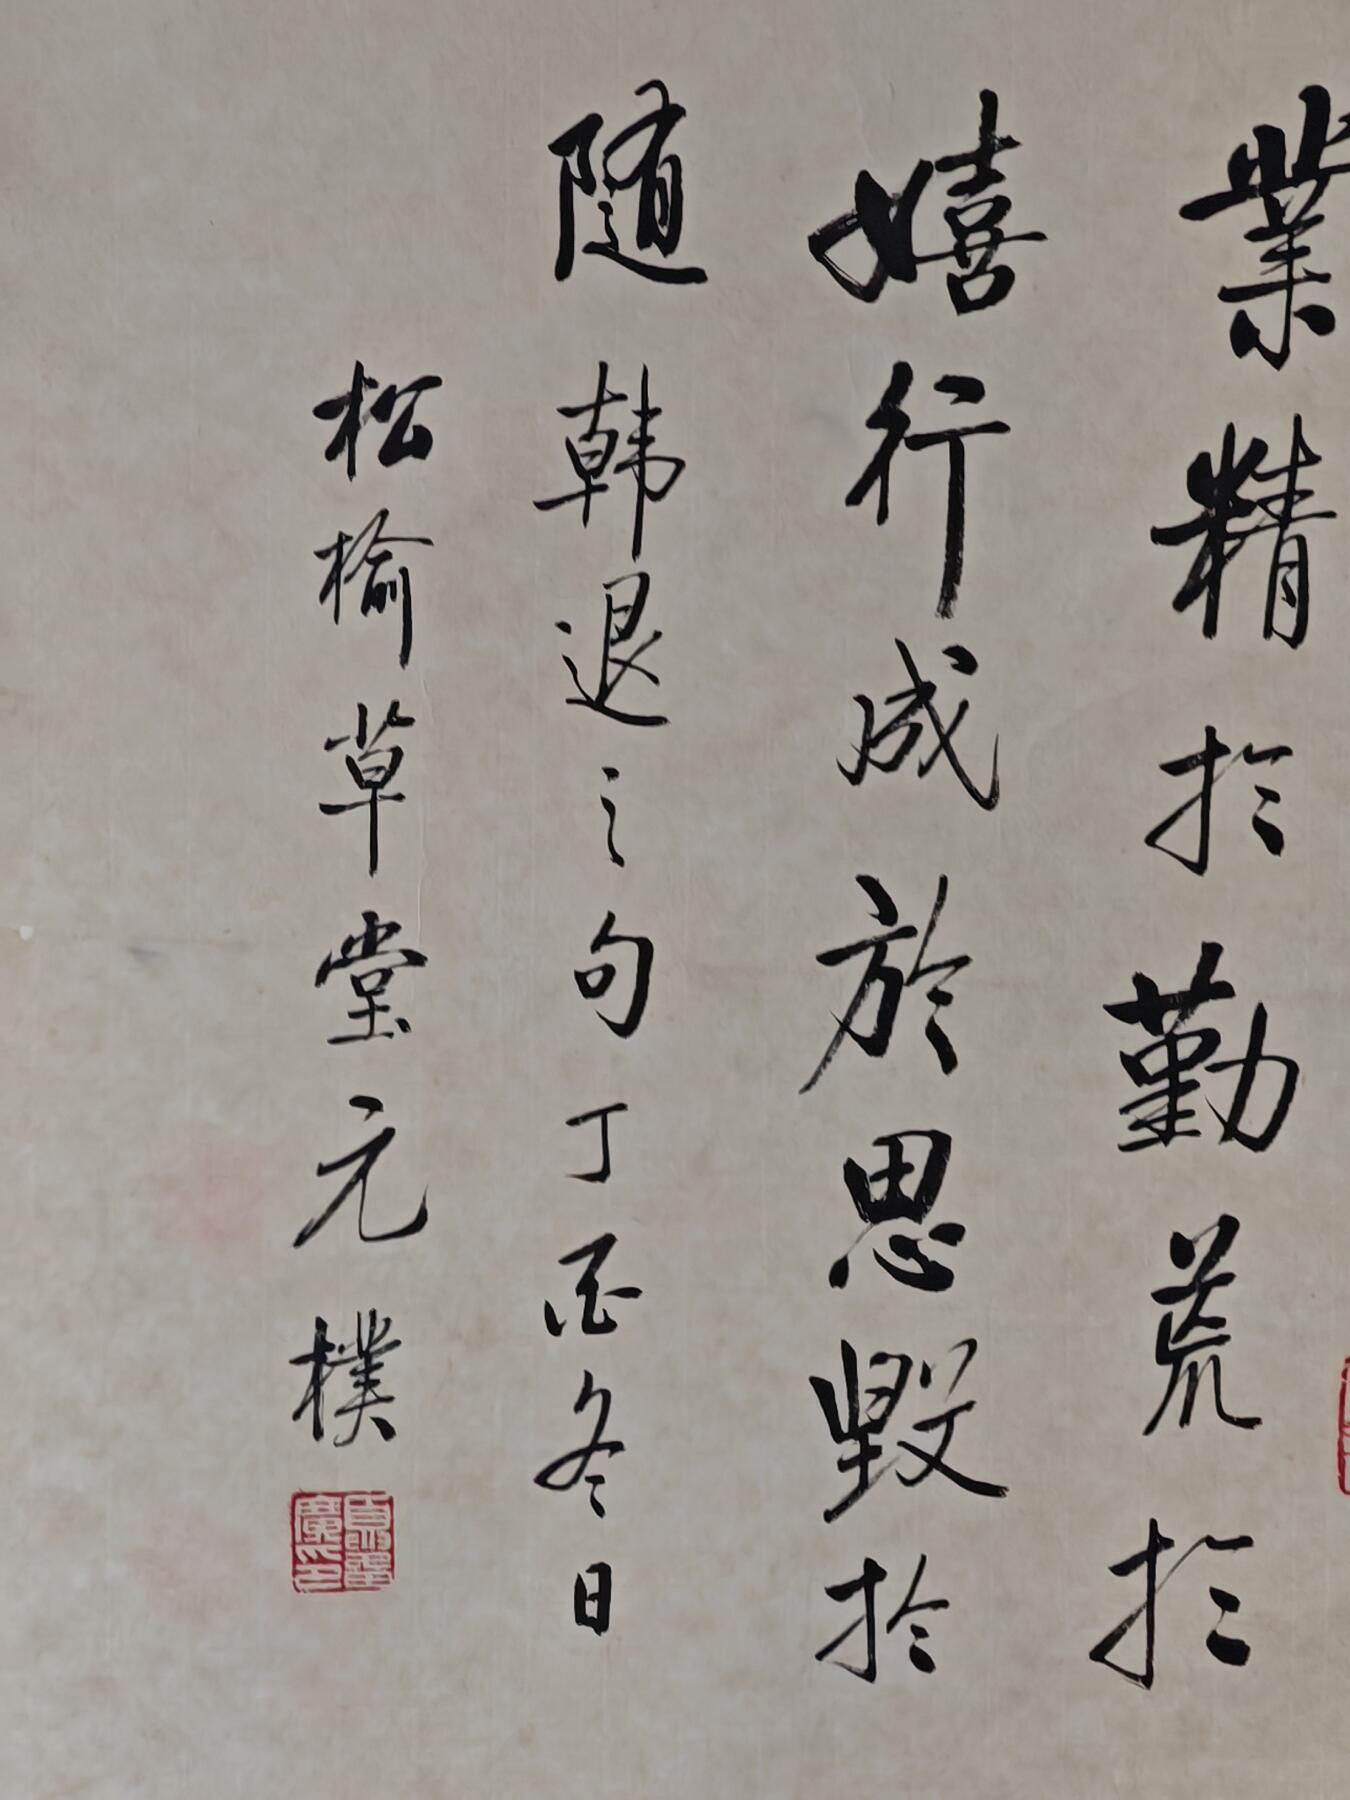 業精於勤荒於
嬉行成於思毀於
随韩退之句丁酉冬日
松榆草堂元樸